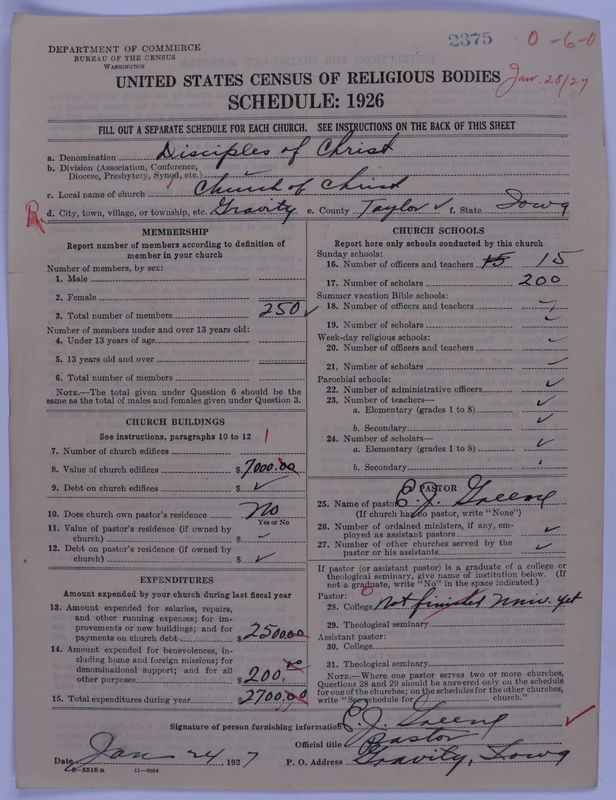 2375 0-6-0
DEPARTMENT OF COMMERCE
BUREAU OF THE CENSUS
WASHINGTON
UNITED STATES CENSUS OF RELIGIOUS BODIES Jan. 28/27
SCHEDULE: 1926
FILL OUT A SEPARATE SCHEDULE FOR EACH CHURCH. SEE INSTRUCTIONS ON THE BACK OF THIS SHEET
a. Denomination Disciples of Christ
b. Division (Association, Conference,
Diocese, Presbytery, Synod, etc.)
c. Local name of church Church of Christ
R d. City, town, village, or township, etc. Gravity e. County Taylor f. State Iowa
MEMBERSHIP
Report number of members according to definition of
member in your church
Number of members, by sex:
1. Male
2. Female
3. Total number of members 250
Number of members under and over 13 years old:
4. Under 13 years of age
5. 13 years old and over
6. Total number of members
NOTE.—The total given under Question 6 should be the
same as the total of males and females given under Question 3.
CHURCH BUILDINGS
See instructions, paragraphs 10 to 12
7. Number of church edifices 1
8. Value of church edifices $ 7000.00
9. Debt on church edifices $ ✓
10. Does church own pastor's residence No
Yes or No
11. Value of pastor's residence (if owned by
church) $
12. Debt on pastor's residence (if owned by
church) $ ✓
EXPENDITURES
Amount expended by your church during last fiscal year
13. Amount expended for salaries, repairs,
and other running expenses; for im-
provements or new buildings; and for
payments on church debt $ 2500.00
14. Amount expended for benevolences, in-
cluding home and foreign missions; for
denominational support; and for all
other purposes $ 200.00
15. Total expenditures during year $ 2700.00
CHURCH SCHOOLS
Report here only schools conducted by this church
Sunday schools:
16. Number of officers and teachers 15 15
17. Number of scholars 200
Summer vacation Bible schools:
18. Number of officers and teachers
19. Number of scholars
Week-day religious schools:
20. Number of officers and teachers
21. Number of scholars
Parochial schools:
22. Number of administrative officers
23. Number of teachers—
a. Elementary (grades 1 to 8)
b. Secondary
24. Number of scholars—
a. Elementary (grades 1 to 8)
b. Secondary
PASTOR
25. Name of pastor C. J. Greene
(If church has no pastor, write "None")
26. Number of ordained ministers, if any, em-
ployed as assistant pastors
27. Number of other churches served by the
pastor or his assistants
If pastor (or assistant pastor) is a graduate of a college or
theological seminary, give name of institution below. (If
not a graduate, write "No" in the space indicated.)
Pastor:
28. College Not finished Univ. yet
29. Theological seminary
Assistant pastor:
30. College
31. Theological seminary
NOTE.—Where one pastor serves two or more churches,
Questions 28 and 29 should be answered only on the schedule
for one of the churches; on the schedules for the other churches,
write "See schedule for church."
Signature of person furnishing information C. J. Greene
Official title Pastor
Date Jan 24 1927 P. O. Address Gravity, Iowa
8-5518a 11-9034